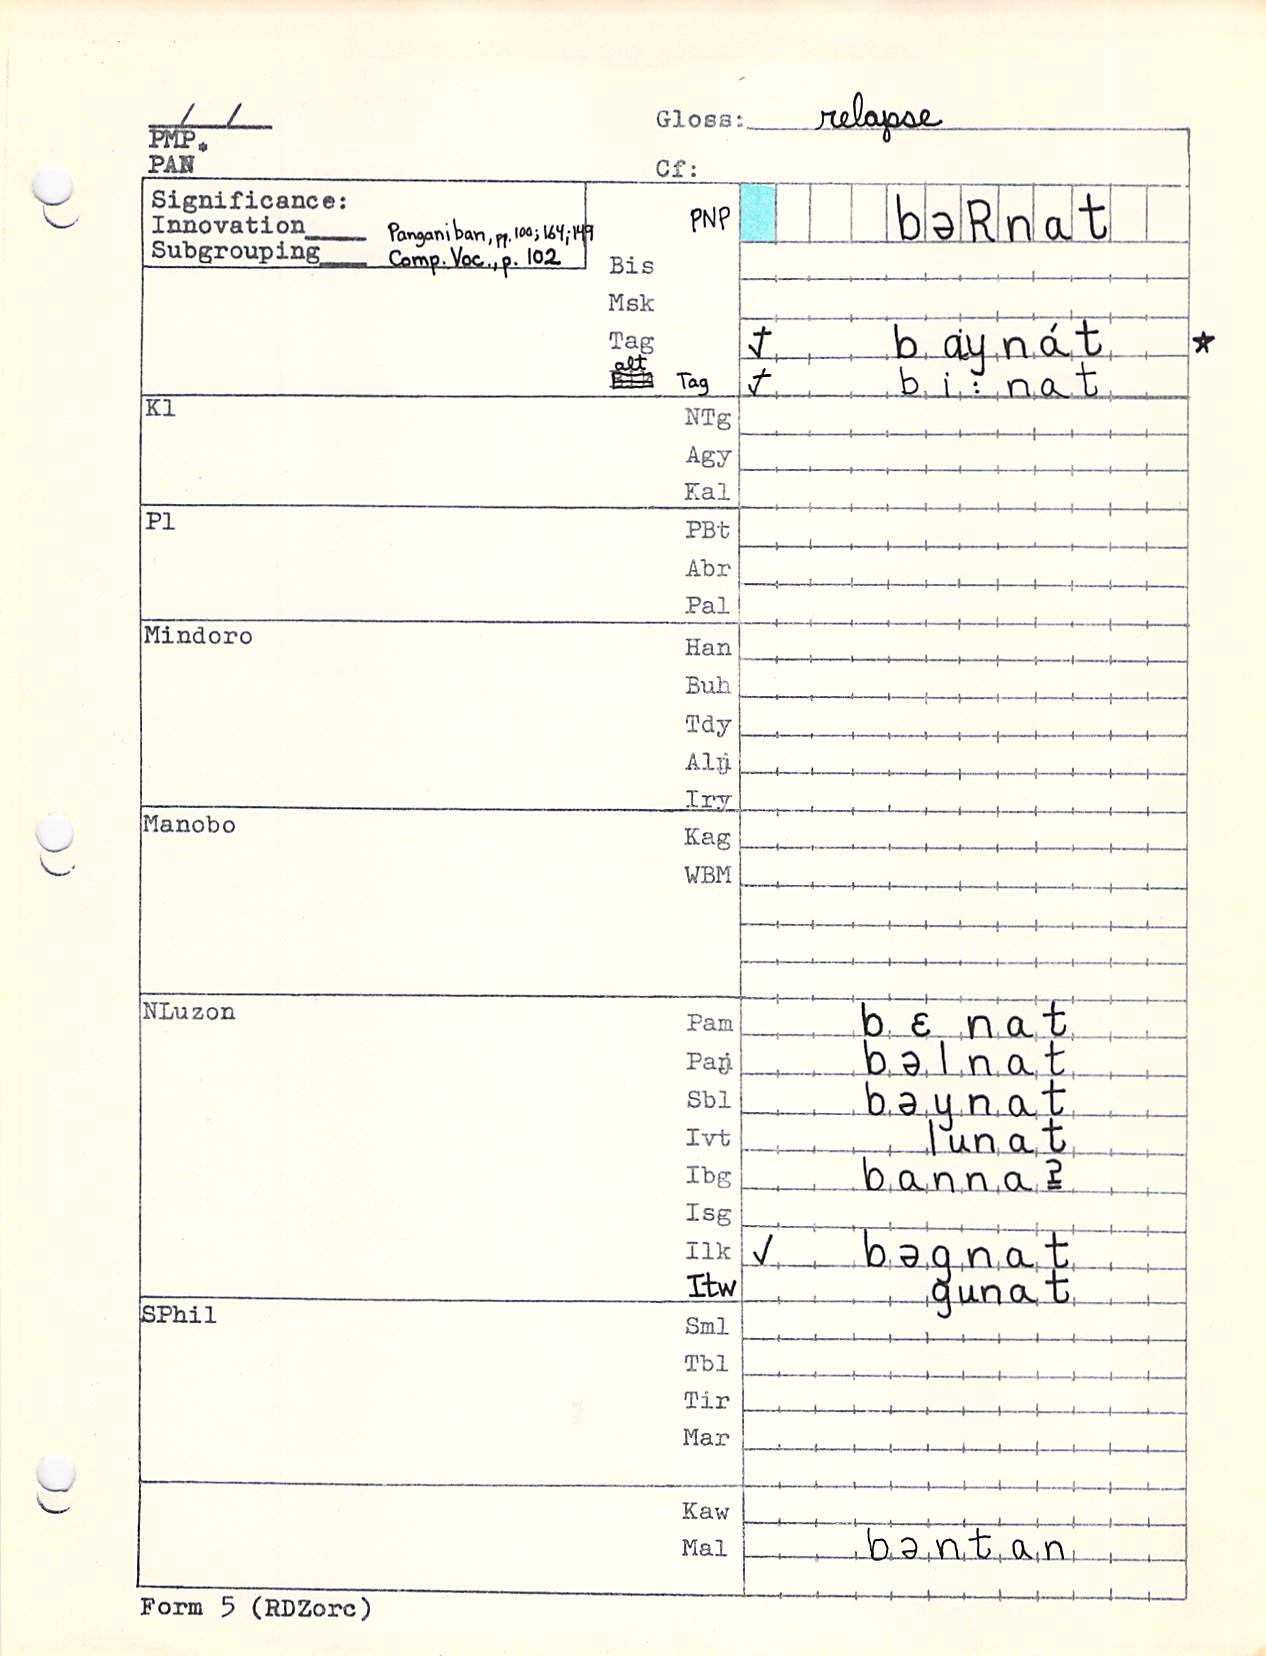 / /
Gloss: relapse
PMP.
PAN
Cf:
Significance:
Innovation____ Panganiban, pp. 100; 164; 149
Subgrouping____ Comp. Voc., p. 102
PNP bəRnat
Bis
Msk
Tag baynát ★
alt Tag bi:nat
Kl
NTg
Agy
Kal
Pl
PBt
Abr
Pal
Mindoro
Han
Buh
Tdy
Alŋ
Iry
Manobo
Kag
WBM
NLuzon
Pam bɛnat
Paŋ bəlnat
Sbl bəynat
Ivt lunat
Ibg bannaʔ
Isg
Ilk ✓ bəgnat
Itw gunat
SPhil
Sml
Tbl
Tir
Mar
Kaw
Mal bəntan
Form 5 (RDZorc)